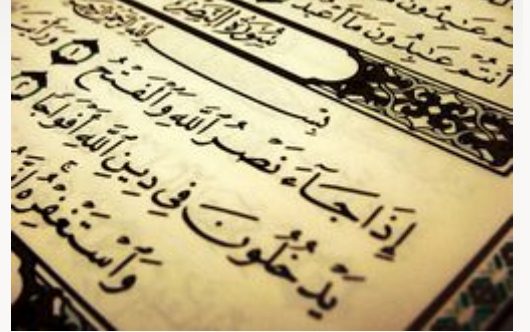 أَنتُمْ عَٰبِدُونَ مَآ أَعْبُدُ
سُورَةُ النَّصْرِ
بِسْمِ اللَّهِ
إِذَا جَآءَ نَصْرُ ٱللَّهِ وَٱلْفَتْحُ ١ وَرَأَيْتَ
يَدْخُلُونَ فِى دِينِ ٱللَّهِ أَفْوَاجًا ٢
وَٱسْتَغْفِرْهُ